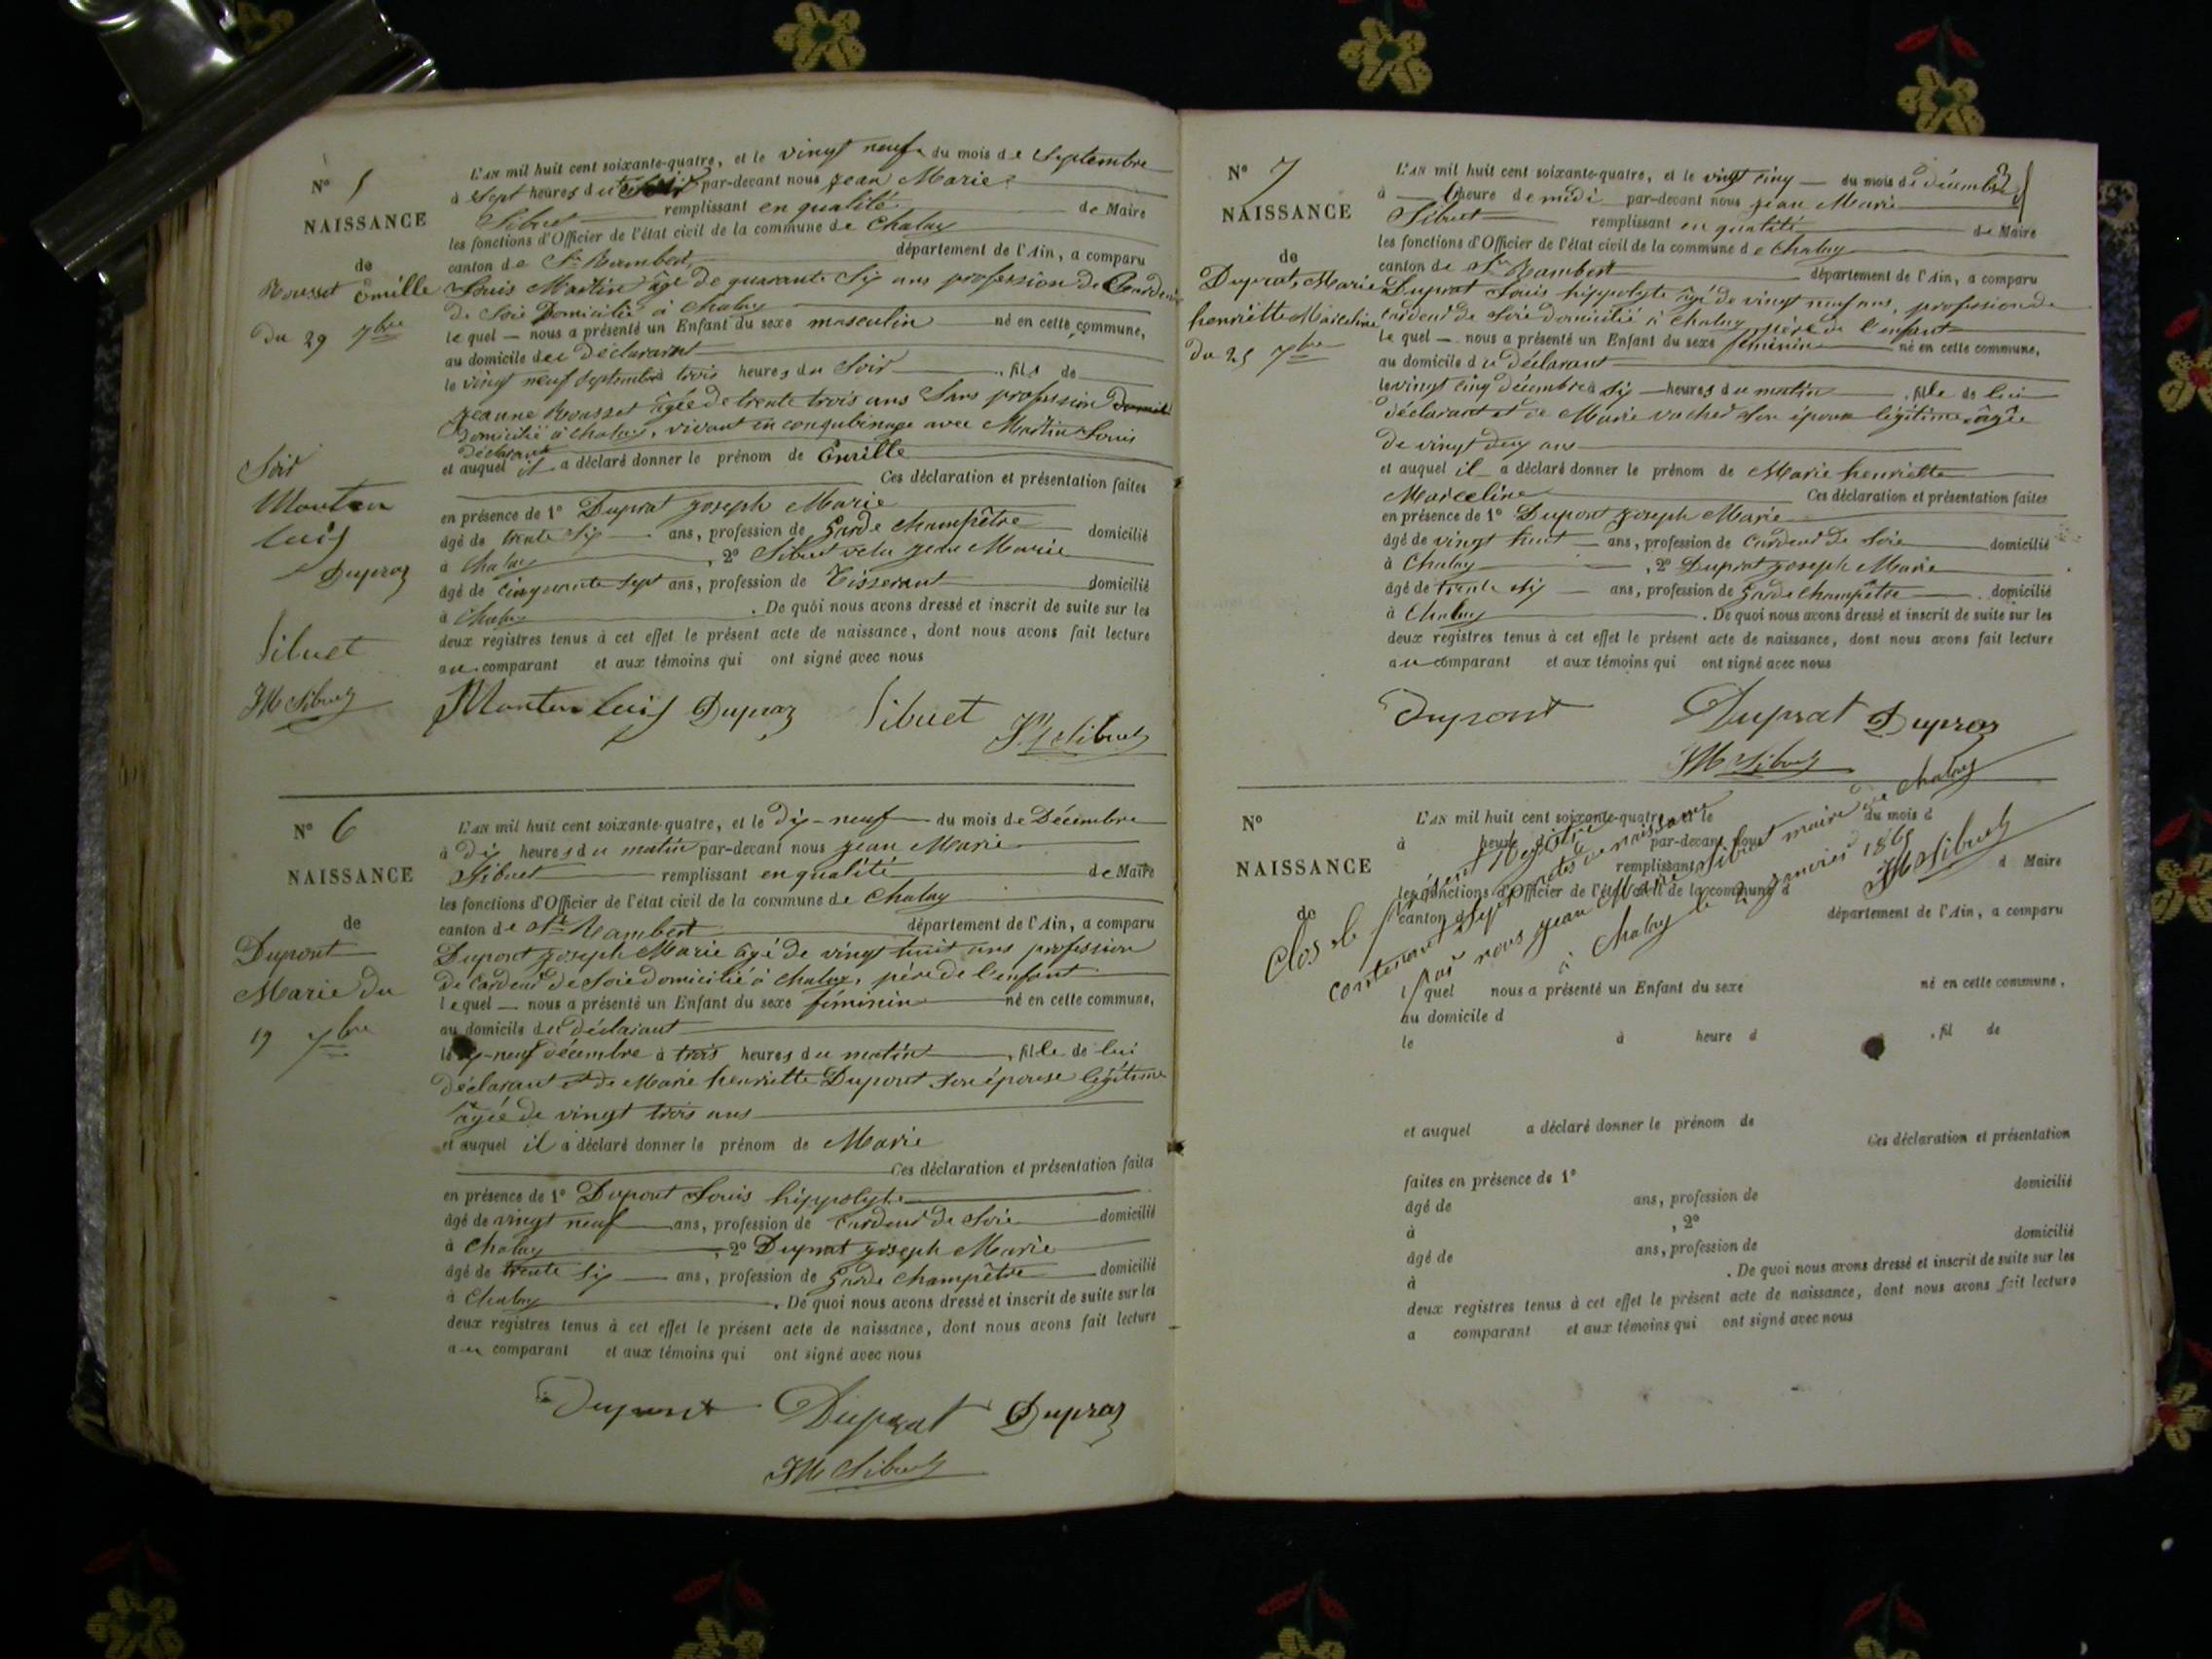 N° 5
NAISSANCE
de
Rousset Emille
du 29 7bre
L'AN mil huit cent soixante-quatre, et le vingt neuf du mois de Septembre
à Sept heures du par-devant nous jean Marie
Sibuet remplissant en qualité de Maire
les fonctions d'Officier de l'état civil de la commune de Chaley
canton de St Rambert département de l'Ain, a comparu
Louis Martin âgé de quarante Six ans profession de Cardeur
de Soie Domicilié à Chaley
lequel — nous a présenté un Enfant du sexe masculin né en cette commune,
au domicile du déclarant
le vingt neuf Septembre à trois heures du Soir , fils de
jeanne Rousset âgée de trente trois ans Sans profession
domicilié à Chaley, vivant en conqubinage avec Martin Louis
déclarant
et auquel il a déclaré donner le prénom de Emille
Ces déclaration et présentation faites
en présence de 1° Duprat joseph Marie
âgé de trente Six ans, profession de garde Champêtre domicilié
à Chaley , 2° Sibuet jean Marie
âgé de Cinquante Sept ans, profession de Tisserant domicilié
à Chaley . De quoi nous avons dressé et inscrit de suite sur les
deux registres tenus à cet effet le présent acte de naissance, dont nous avons fait lecture
au comparant et aux témoins qui ont signé avec nous
Soir
Marten
luis
Dupraz
Sibuet
JM Sibuet
Marten luis Dupraz Sibuet JM Sibuet
N° 6
NAISSANCE
de
Dupont
Marie du
19 7bre
L'AN mil huit cent soixante-quatre, et le dix-neuf du mois de Décembre
à dix heures du matin par-devant nous jean Marie
Sibuet remplissant en qualité de Maire
les fonctions d'Officier de l'état civil de la commune de Chaley
canton de St Rambert département de l'Ain, a comparu
Dupont joseph Marie âgé de vingt huit ans profession
de Cardeur de Soie domicilié à Chaley, père de l'enfant
lequel — nous a présenté un Enfant du sexe féminin né en cette commune,
au domicile du déclarant
le dix-neuf décembre à trois heures du matin , fille de lui
déclarant et de Marie henriette Dupont son épouse légitime
âgée de vingt trois ans
et auquel il a déclaré donner le prénom de Marie
Ces déclaration et présentation faites
en présence de 1° Dupont Louis hippolyte
âgé de vingt neuf ans, profession de Cardeur de Soie domicilié
à Chaley , 2° Duprat joseph Marie
âgé de trente Six ans, profession de garde Champêtre domicilié
à Chaley . De quoi nous avons dressé et inscrit de suite sur les
deux registres tenus à cet effet le présent acte de naissance, dont nous avons fait lecture
au comparant et aux témoins qui ont signé avec nous
Dupont Duprat Dupraz
JM Sibuet
N° 7
NAISSANCE
de
Duprat, Marie
henriette Marceline
du 25 7bre
L'AN mil huit cent soixante-quatre, et le vingt cinq du mois de décembre
à heure de midi par-devant nous jean Marie
Sibuet remplissant en qualité de Maire
les fonctions d'Officier de l'état civil de la commune de Chaley
canton de St Rambert département de l'Ain, a comparu
Duprat Louis hippolyte âgé de vingt neuf ans, profession de
Cardeur de Soie domicilié à Chaley père de l'enfant
lequel — nous a présenté un Enfant du sexe féminin né en cette commune,
au domicile du déclarant
le vingt cinq décembre à Six heures du matin , fille de lui
déclarant et de Marie vacher Son épouse légitime âgée
de vingt deux ans
et auquel il a déclaré donner le prénom de Marie henriette
Marceline Ces déclaration et présentation faites
en présence de 1° Dupont joseph Marie
âgé de vingt huit ans, profession de Cardeur de Soie domicilié
à Chaley , 2° Duprat joseph Marie
âgé de trente Six ans, profession de garde Champêtre domicilié
à Chaley . De quoi nous avons dressé et inscrit de suite sur les
deux registres tenus à cet effet le présent acte de naissance, dont nous avons fait lecture
au comparant et aux témoins qui ont signé avec nous
Dupont Duprat Dupraz
JM Sibuet
N°
NAISSANCE
de
L'AN mil huit cent soixante-quatre, et le du mois d
à heure d par-devant nous
remplissant d Maire
les fonctions d'Officier de l'état civil de la commune d
canton d département de l'Ain, a comparu
Clos le présent Registre
contenant Sept actes de naissance
par nous jean Marie Sibuet maire de Chaley
à Chaley le 2 janvier 1865
JM Sibuet
lequel nous a présenté un Enfant du sexe né en cette commune,
au domicile d
le à heure d , fil de
et auquel a déclaré donner le prénom de
Ces déclaration et présentation
faites en présence de 1°
âgé de ans, profession de domicilié
à , 2°
âgé de ans, profession de domicilié
à . De quoi nous avons dressé et inscrit de suite sur les
deux registres tenus à cet effet le présent acte de naissance, dont nous avons fait lecture
a comparant et aux témoins qui ont signé avec nous